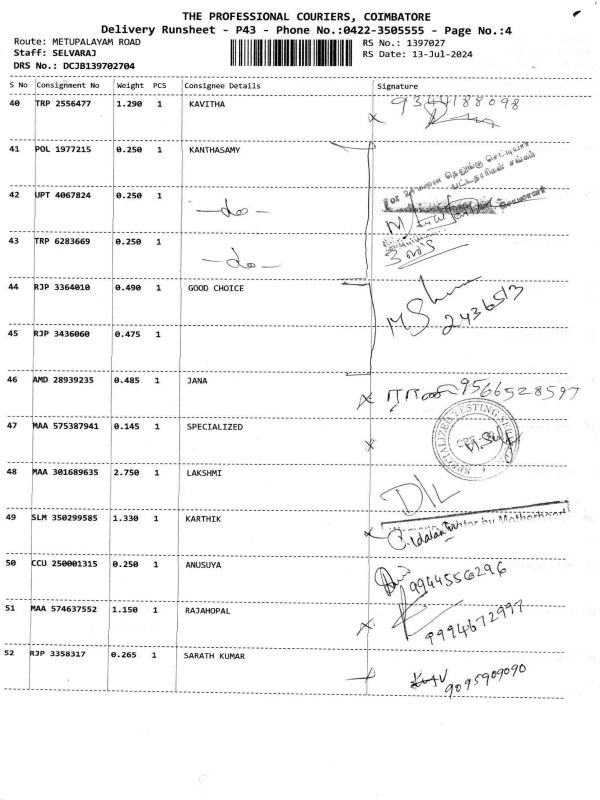 THE PROFESSIONAL COURIERS, COIMBATORE
Delivery Runsheet - P43 - Phone No.:0422-3505555 - Page No.:4
Route: METUPALAYAM ROAD RS No.: 1397027
Staff: SELVARAJ RS Date: 13-Jul-2024
DRS No.: DCJB139702704
S No Consignment No Weight PCS Consignee Details Signature
40 TRP 2556477 1.290 1 KAVITHA 9344188098
41 POL 1977215 0.250 1 KANTHASAMY
42 UPT 4067824 0.250 1 -do-
43 TRP 6283669 0.250 1 -do-
44 RJP 3364010 0.490 1 GOOD CHOICE
2436513
45 RJP 3436060 0.475 1
46 AMD 28939235 0.485 1 JANA 9566528597
47 MAA 575387941 0.145 1 SPECIALIZED
SPECIALIZED TESTING
48 MAA 301689635 2.750 1 LAKSHMI D/L
49 SLM 350299585 1.330 1 KARTHIK
by Motherhood
50 CCU 250001315 0.250 1 ANUSUYA 9944556296
51 MAA 574637552 1.150 1 RAJAHOPAL 9994672997
52 RJP 3358317 0.265 1 SARATH KUMAR
9095909090